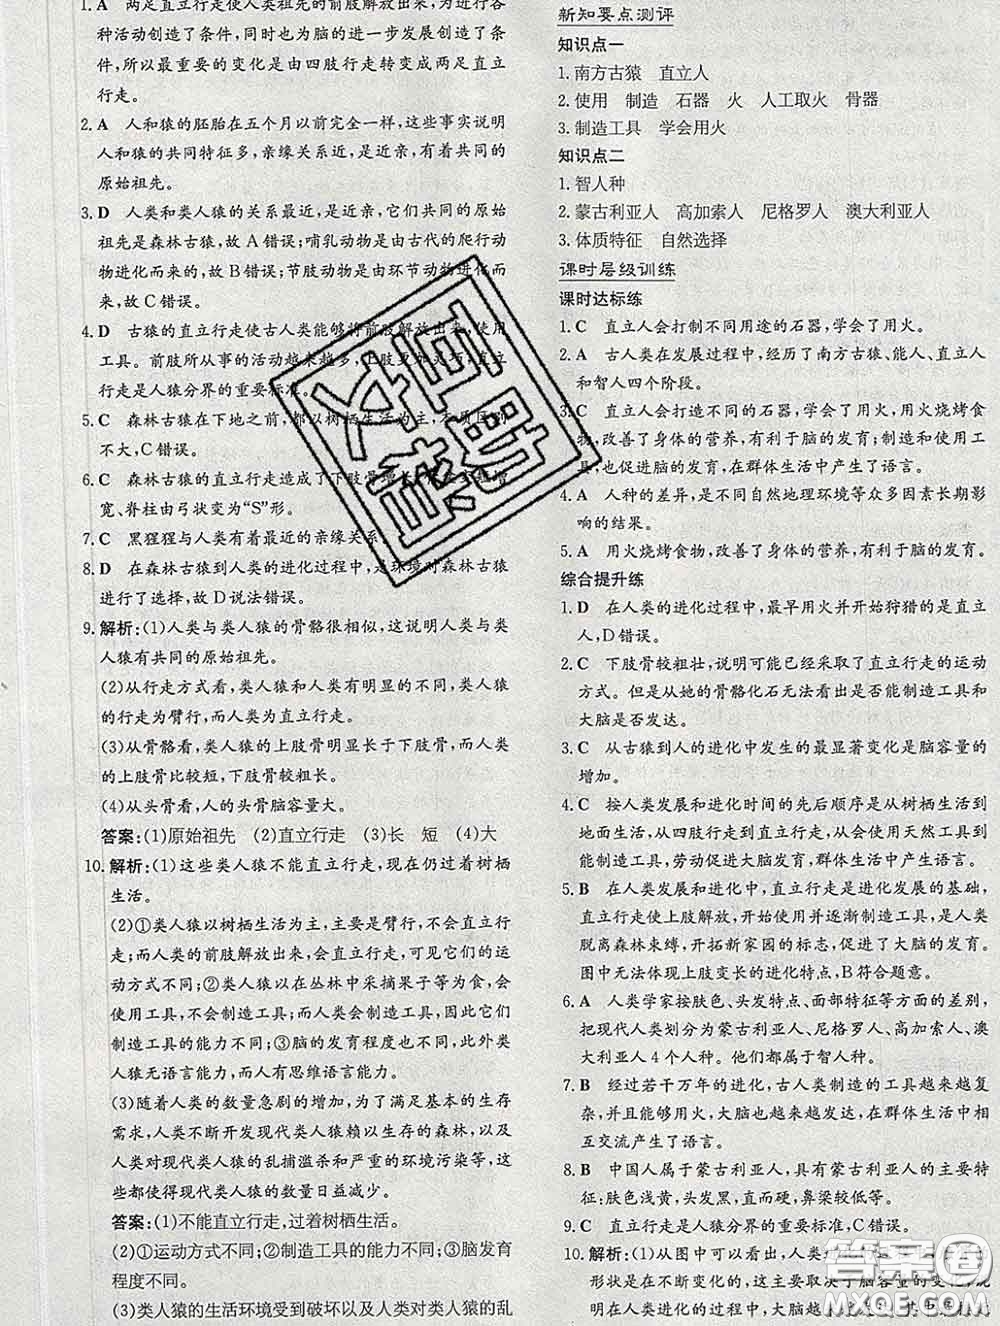 1. A 两足直立行走使人类祖先的前肢解放出来,为进行各
种活动创造了条件,同时也为脑的进一步发展创造了条
件,所以最重要的变化是由四肢行走转变成两足直立
行走。
2. A 人和猿的胚胎在五个月以前完全一样,这些事实说明
人和猿的共同特征多,亲缘关系近,是近亲,有着共同的
原始祖先。
3. D 人类和类人猿的关系最近,是近亲,它们共同的原始
祖先是森林古猿,故A错误;哺乳动物是由古代的爬行动
物进化而来的,故B错误;节肢动物是由环节动物进化而
来,故C错误。
4. D 古猿的直立行走使古人类能够将前肢解放出来,使用
工具。前肢所从事的活动越来越多,上肢更加灵巧,直立
行走是人猿分界的重要标准。
5. C 森林古猿在下地之前,都以树栖生活为主,体质区别
不大,C错误。
6. C 森林古猿的直立行走造成了下肢骨增长,骨盆变短增
宽、脊柱由弓状变为“S”形。
7. C 黑猩猩与人类有着最近的亲缘关系。
8. D 在森林古猿到人类的进化过程中,是环境对森林古猿
进行了选择,故D说法错误。
9. 解析:(1)人类与类人猿的骨骼很相似,这说明人类与类
人猿有共同的原始祖先。
(2)从行走方式看,类人猿和人类有明显的不同,类人猿
的行走为臂行,而人类为直立行走。
(3)从骨骼看,类人猿的上肢骨明显长于下肢骨,而人类
的上肢骨比较短,下肢骨较粗长。
(4)从头骨看,人的头骨脑容量大。
答案:(1)原始祖先 (2)直立行走 (3)长 短 (4)大
10. 解析:(1)这些类人猿不能直立行走,现在仍过着树栖
生活。
(2)①类人猿以树栖生活为主,主要是臂行,不会直立行
走;而人类的前肢解放出来,会直立行走,可见它们的运
动方式不同;②类人猿在丛林中采摘果子等为食,会
使用工具,不会制造工具;而人类会制造工具,因此它们
制造工具的能力不同;③脑的发育程度也不同,此外类
人猿无语言能力,而人有思维语言能力。
(3)随着人类的数量急剧的增加,为了满足基本的生存
需求,人类不断开发现代类人猿赖以生存的森林,以及
人类对现代类人猿的乱捕滥杀和严重的环境污染等,这
些都使得现代类人猿的数量日益减少。
答案:(1)不能直立行走,过着树栖生活。
(2)①运动方式不同;②制造工具的能力不同;③脑发育
程度不同。
(3)类人猿的生活环境受到破坏以及人类对类人猿的乱
新知要点测评
知识点一
1. 南方古猿 直立人
2. 使用 制造 石器 火 人工取火 骨器
3. 制造工具 学会用火
知识点二
1. 智人种
2. 蒙古利亚人 高加索人 尼格罗人 澳大利亚人
3. 体质特征 自然选择
课时层级训练
课时达标练
1. C 直立人会打制不同用途的石器,学会了用火。
2. A 古人类在发展过程中,经历了南方古猿、能人、直立人
和智人四个阶段。
3. C 直立人会打制造不同的石器,学会了用火,用火烧烤食
物,改善了身体的营养,有利于脑的发育;制造和使用工
具,也促进脑的发育,在群体生活中产生了语言。
4. A 人种的差异,是不同自然地理环境等众多因素长期影
响的结果。
5. A 用火烧烤食物,改善了身体的营养,有利于脑的发育。
综合提升练
1. D 在人类的进化过程中,最早用火并开始狩猎的是直立
人,D错误。
2. C 下肢骨较粗壮,说明可能已经采取了直立行走的运动
方式。但是从她的骨骼化石无法看出是否能制造工具和
大脑是否发达。
3. C 从古猿到人的进化中发生的最显著变化是脑容量的
增加。
4. C 按人类发展和进化时间的先后顺序是从树栖生活到
地面生活,从四肢行走到直立行走,从会使用天然工具到
能制造工具,劳动促进大脑发育,群体生活中产生语言。
5. B 在人类发展和进化中,直立行走是进化发展的基础,
直立行走使上肢解放,开始使用并逐渐制造工具,是人类
脱离森林束缚,开拓新家园的标志,促进了大脑的发育。
图中无法体现上肢变长的进化特点,B符合题意。
6. A 人类学家按肤色、头发特点、面部特征等方面的差别,
把现代人类划分为蒙古利亚人、尼格罗人、高加索人、澳
大利亚人4个人种。他们都属于智人种。
7. B 经过若干万年的进化,古人类制造的工具越来越复
杂,并且能够用火,大脑也越来越发达,在群体生活中相
互交流产生了语言。
8. B 中国人属于蒙古利亚人,具有蒙古利亚人的主要特
征:肤色浅黄,头发黑,直而硬,鼻梁较低等。
9. C 直立行走是人猿分界的重要标准,C错误。
10. 解析:(1)从图中可以看出,人类
形状是在不断变化的,这主要取决于脑容量的变化,说
明在人类进化的过程中,大脑
答案圈
MXQE.COM